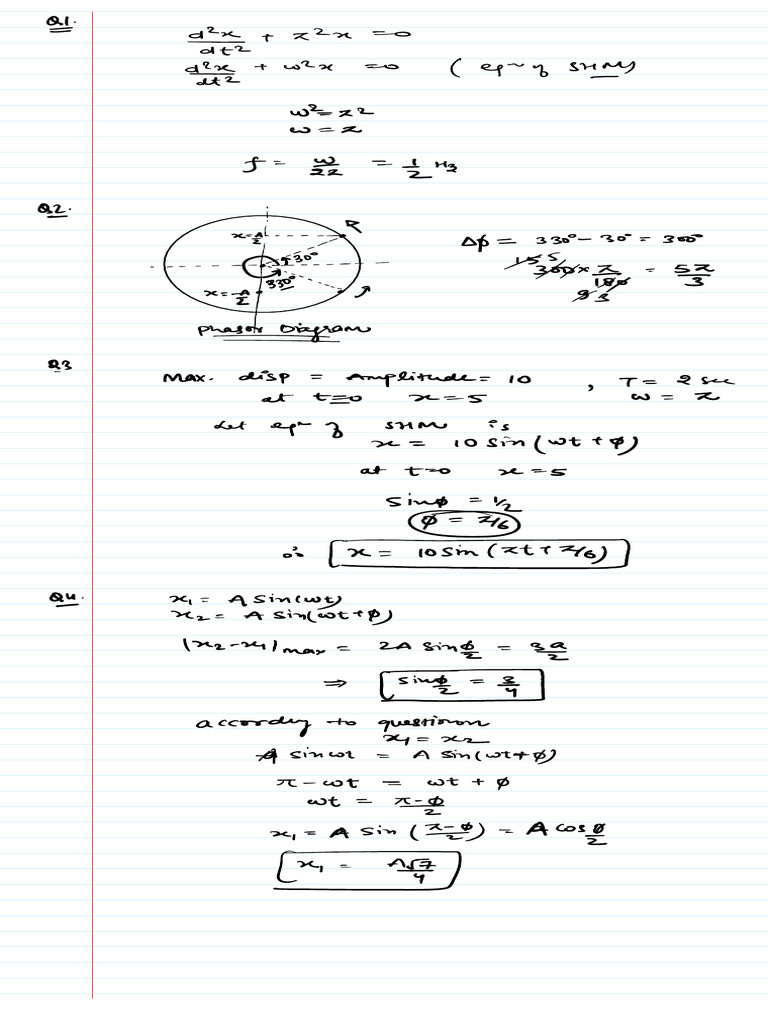 Q1.
d²x/dt² + π²x = 0
d²x/dt² + ω²x = 0 ( eqⁿ of SHM)
ω² = π²
ω = π
f = ω/2π = 1/2 Hz
Q2.
x = A/2
30°
330°
x = -A/2
Phasor Diagram
Δϕ = 330° - 30° = 300°
15 5
300 × π/180 = 5π/3
9 3
Q3
Max. disp = Amplitude = 10 , T = 2 sec
at t=0 x = 5 ω = π
Let eqⁿ of SHM is
x = 10 sin (ωt + ϕ)
at t=0 x = 5
sinϕ = 1/2
ϕ = π/6
∴ x = 10 sin (πt + π/6)
Q4.
x₁ = A sin(ωt)
x₂ = A sin(ωt + ϕ)
|x₂ - x₁|max = 2A sin ϕ/2 = 3a/2
⇒ sin ϕ/2 = 3/4
according to question
x₁ = x₂
A sin ωt = A sin(ωt + ϕ)
π - ωt = ωt + ϕ
ωt = π-ϕ/2
x₁ = A sin (π-ϕ/2) = A cos ϕ/2
x₁ = A√7/4